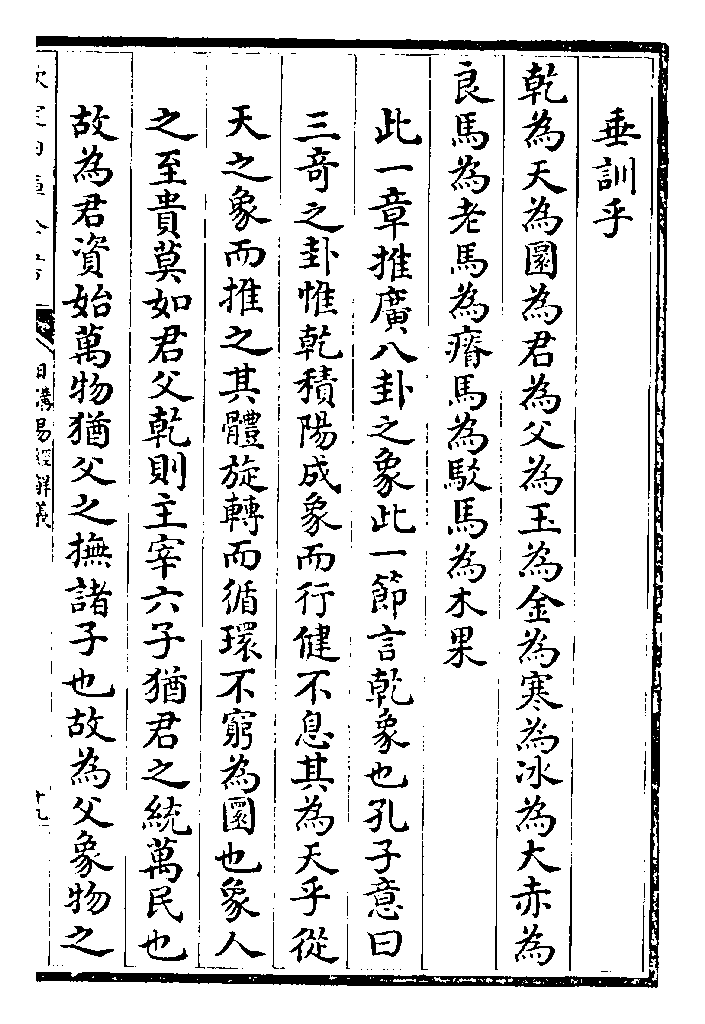 垂訓乎
乾為天為圜為君為父為玉為金為寒為冰為大赤為
良馬為老馬為瘠馬為駁馬為木果
此一章推廣八卦之象此一節言乾象也孔子意曰
三奇之卦惟乾積陽成象而行健不息其為天乎從
天之象而推之其體旋轉而循環不窮為圜也象人
之至貴莫如君父乾則主宰六子猶君之統萬民也
故為君資始萬物猶父之撫諸子也故為父象物之
日講易經解義
十九